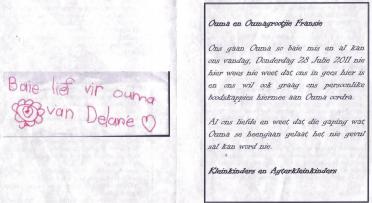 Baie lief vir ouma
van Delanie
Ouma en Oumagrootjie Fransie
Ons gaan Ouma so baie mis en al kan
ons vandag, Donderdag 28 Julie 2011 nie
hier wees nie weet dat ons in gees hier is
en ons wil ook graag ons persoonlike
boodskappies hiermee aan Ouma oordra.
Al ons liefde en weet dat die gaping wat
Ouma se heengaan gelaat het nie gevul
sal kan word nie.
Kleinkinders en Agterkleinkinders